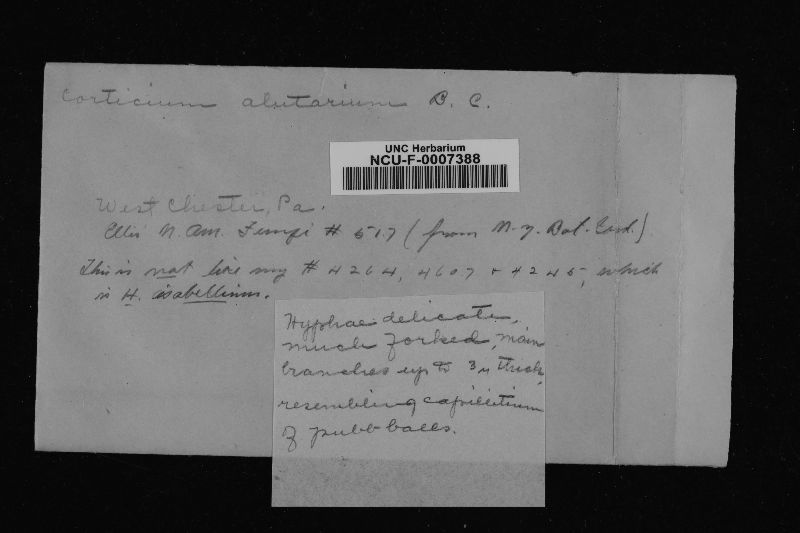 Corticium alutarium B. C.
UNC Herbarium
NCU-F-0007388
West Chester, Pa.
Ellis N. Am. Fungi # 517 (from N.Y. Bot. Gard.)
This is not like my # 4264, 4607 + 4245, which
is H. isabellinum.
Hyphae delicate,
much forked, main
branches up to 3 µ thick,
resembling capillitium
of puff-balls.